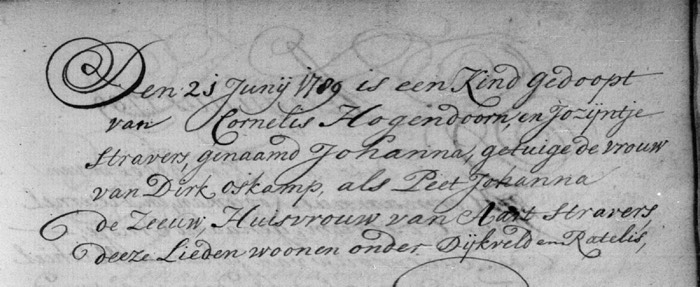 Den 21 Junij 1789 is een Kind gedoopt
van Cornelis Hogendoorn, en Jozijntje
Stravers, genaamd Johanna, getuige de vrouw
van Dirk oskamp, als Peet Johanna
de Zeeuw, Huisvrouw van Aart Stravers
deeze Lieden woonen onder Dijkveld en Ratelis,